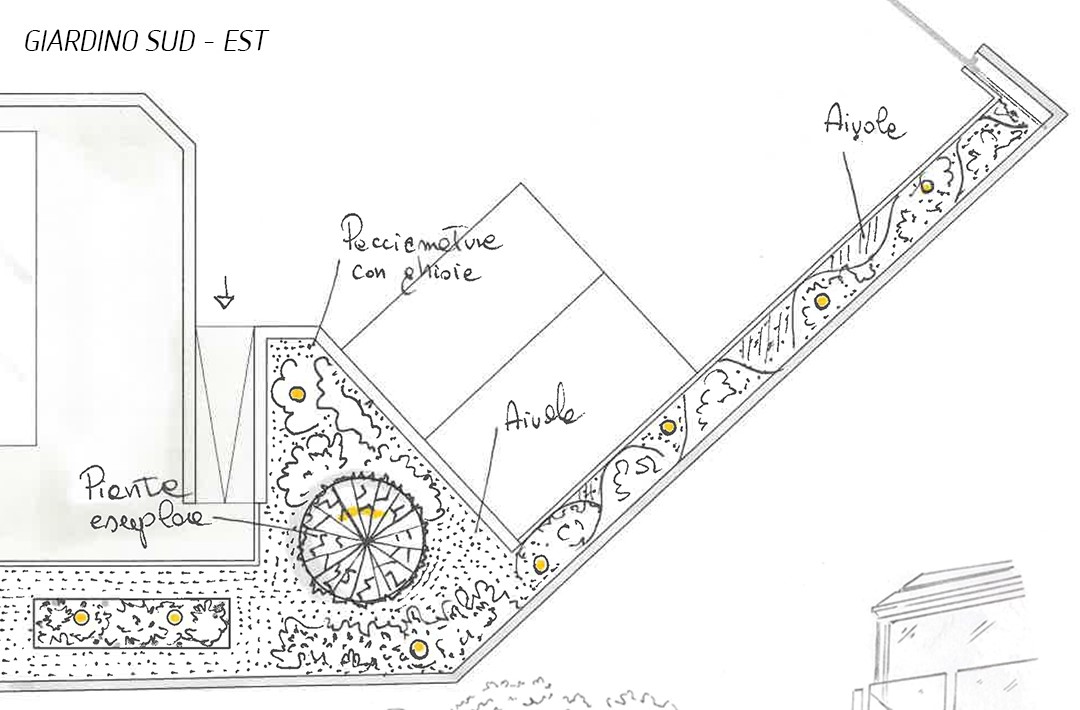 GIARDINO SUD - EST
Aivole
Pacciamature
con ghiaie
Aivole
Piante
esemplare